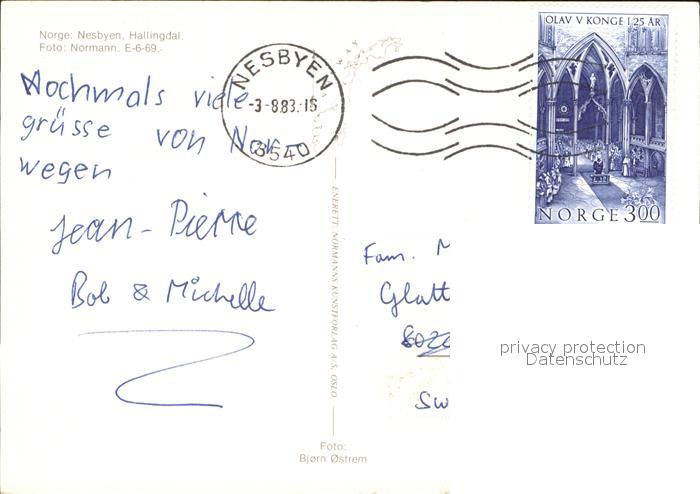 Norge: Nesbyen, Hallingdal.
Foto: Normann. E-6-69.-
Nochmals viele
grüsse von Nor-
wegen
Jean-Pierre
Bob & Michelle
NESBYEN
-3-8.83.-16
3540
OLAV V KONGE I 25 ÅR
NORGE 300
ENERETT: NORMANNS KUNSTFORLAG A/S, OSLO
Fam. M
Glatt
Sw
privacy protection
Datenschutz
Foto:
Bjørn Østrem